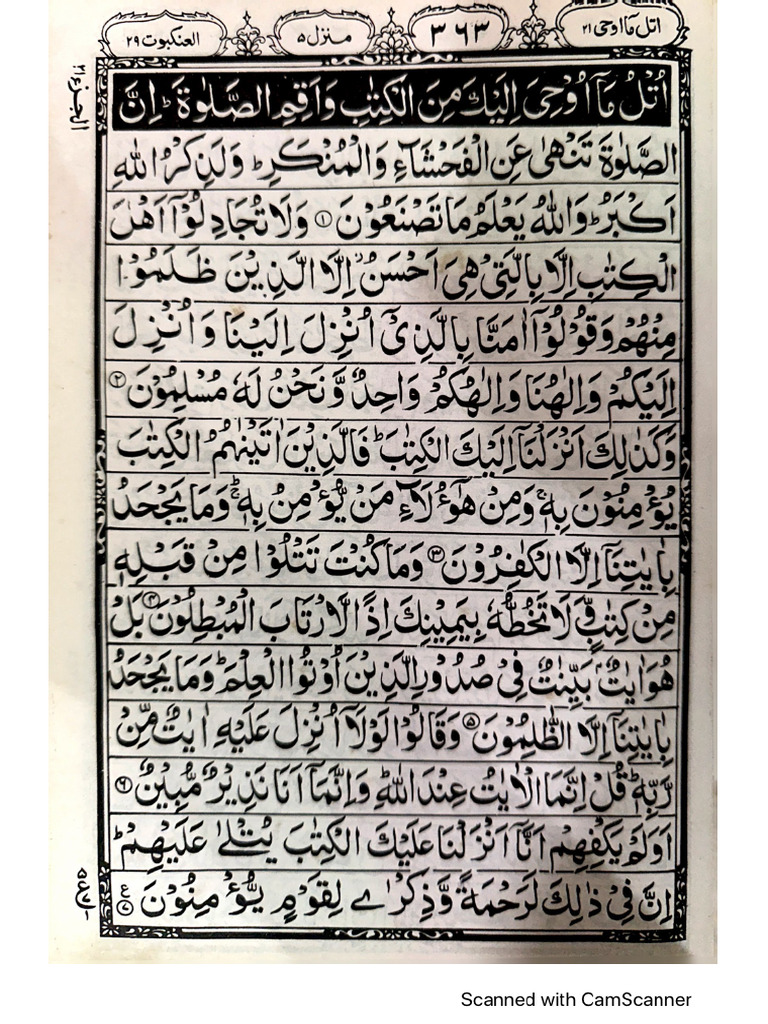 اتل مآ اوحی ۲۱
۳۶۳
منزل ۵
العنکبوت ۲۹
الجزء ۲۱
اُتْلُ مَاۤ اُوْحِیَ اِلَیْكَ مِنَ الْكِتٰبِ وَاَقِمِ الصَّلٰوةَ ؕ اِنَّ
الصَّلٰوةَ تَنْهٰی عَنِ الْفَحْشَآءِ وَالْمُنْكَرِ ؕ وَلَذِكْرُ اللّٰهِ
اَكْبَرُ ؕ وَاللّٰهُ یَعْلَمُ مَا تَصْنَعُوْنَ ۝۱ وَلَا تُجَادِلُوْۤا اَهْلَ
الْكِتٰبِ اِلَّا بِالَّتِیْ هِیَ اَحْسَنُ ۖ اِلَّا الَّذِیْنَ ظَلَمُوْا
مِنْهُمْ وَقُوْلُوْۤا اٰمَنَّا بِالَّذِیْۤ اُنْزِلَ اِلَیْنَا وَاُنْزِلَ
اِلَیْكُمْ وَاِلٰهُنَا وَاِلٰهُكُمْ وَاحِدٌ وَّنَحْنُ لَهٗ مُسْلِمُوْنَ ۝۲
وَكَذٰلِكَ اَنْزَلْنَاۤ اِلَیْكَ الْكِتٰبَ ؕ فَالَّذِیْنَ اٰتَیْنٰهُمُ الْكِتٰبَ
یُؤْمِنُوْنَ بِهٖ ۚ وَمِنْ هٰۤؤُلَآءِ مَنْ یُّؤْمِنُ بِهٖ ؕ وَمَا یَجْحَدُ
بِاٰیٰتِنَاۤ اِلَّا الْكٰفِرُوْنَ ۝۳ وَمَا كُنْتَ تَتْلُوْا مِنْ قَبْلِهٖ
مِنْ كِتٰبٍ وَّلَا تَخُطُّهٗ بِیَمِیْنِكَ اِذًا لَّارْتَابَ الْمُبْطِلُوْنَ ۝۴ بَلْ
هُوَ اٰیٰتٌۢ بَیِّنٰتٌ فِیْ صُدُوْرِ الَّذِیْنَ اُوْتُوا الْعِلْمَ ؕ وَمَا یَجْحَدُ
بِاٰیٰتِنَاۤ اِلَّا الظّٰلِمُوْنَ ۝۵ وَقَالُوْا لَوْلَاۤ اُنْزِلَ عَلَیْهِ اٰیٰتٌ مِّنْ
رَّبِّهٖ ؕ قُلْ اِنَّمَا الْاٰیٰتُ عِنْدَ اللّٰهِ ؕ وَاِنَّمَاۤ اَنَا نَذِیْرٌ مُّبِیْنٌ ۝۶
اَوَلَمْ یَكْفِهِمْ اَنَّاۤ اَنْزَلْنَا عَلَیْكَ الْكِتٰبَ یُتْلٰی عَلَیْهِمْ ؕ
اِنَّ فِیْ ذٰلِكَ لَرَحْمَةً وَّذِكْرٰی لِقَوْمٍ یُّؤْمِنُوْنَ ۝۷ ع
Scanned with CamScanner